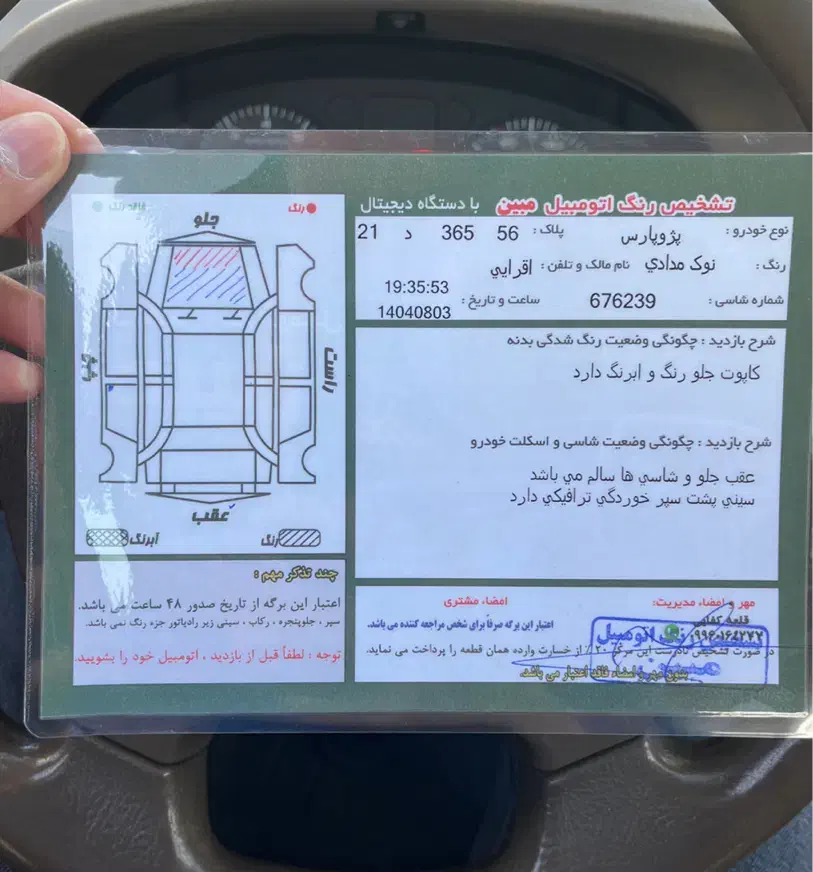 تشخیص رنگ اتومبیل مبین با دستگاه دیجیتال
نوع خودرو : پژوپارس پلاک : 56 365 د 21
رنگ : نوک مدادي نام مالک و تلفن : اقرايي
شماره شاسی : 676239 ساعت و تاریخ : 19:35:53
14040803
شرح بازدید : چگونگی وضعیت رنگ شدگی بدنه
کاپوت جلو رنگ و ابرنگ دارد
شرح بازدید : چگونگی وضعیت شاسی و اسکلت خودرو
عقب جلو و شاسي ها سالم مي باشد
سيني پشت سپر خوردگي ترافيکي دارد
رنگ
فاقد رنگ
جلو
راست
چپ
عقب
رنگ
آبرنگ
چند تذکر مهم :
اعتبار این برگه از تاریخ صدور ۴۸ ساعت می باشد.
سپر ، جلوپنجره ، رکاب ، سینی زیر رادیاتور جزء رنگ نمی باشد.
توجه : لطفاً قبل از بازدید ، اتومبیل خود را بشویید.
مهر و امضاء مدیریت:
امضاء مشتری
اعتبار این برگه صرفاً برای شخص مراجعه کننده می باشد.
در صورت تشخیص نادرست این مرکز ۲۰٪ از خسارت وارده همان قطعه را پرداخت می نماید.
بدون مهر و امضاء فاقد اعتبار می باشد.
رنگ اتومبیل